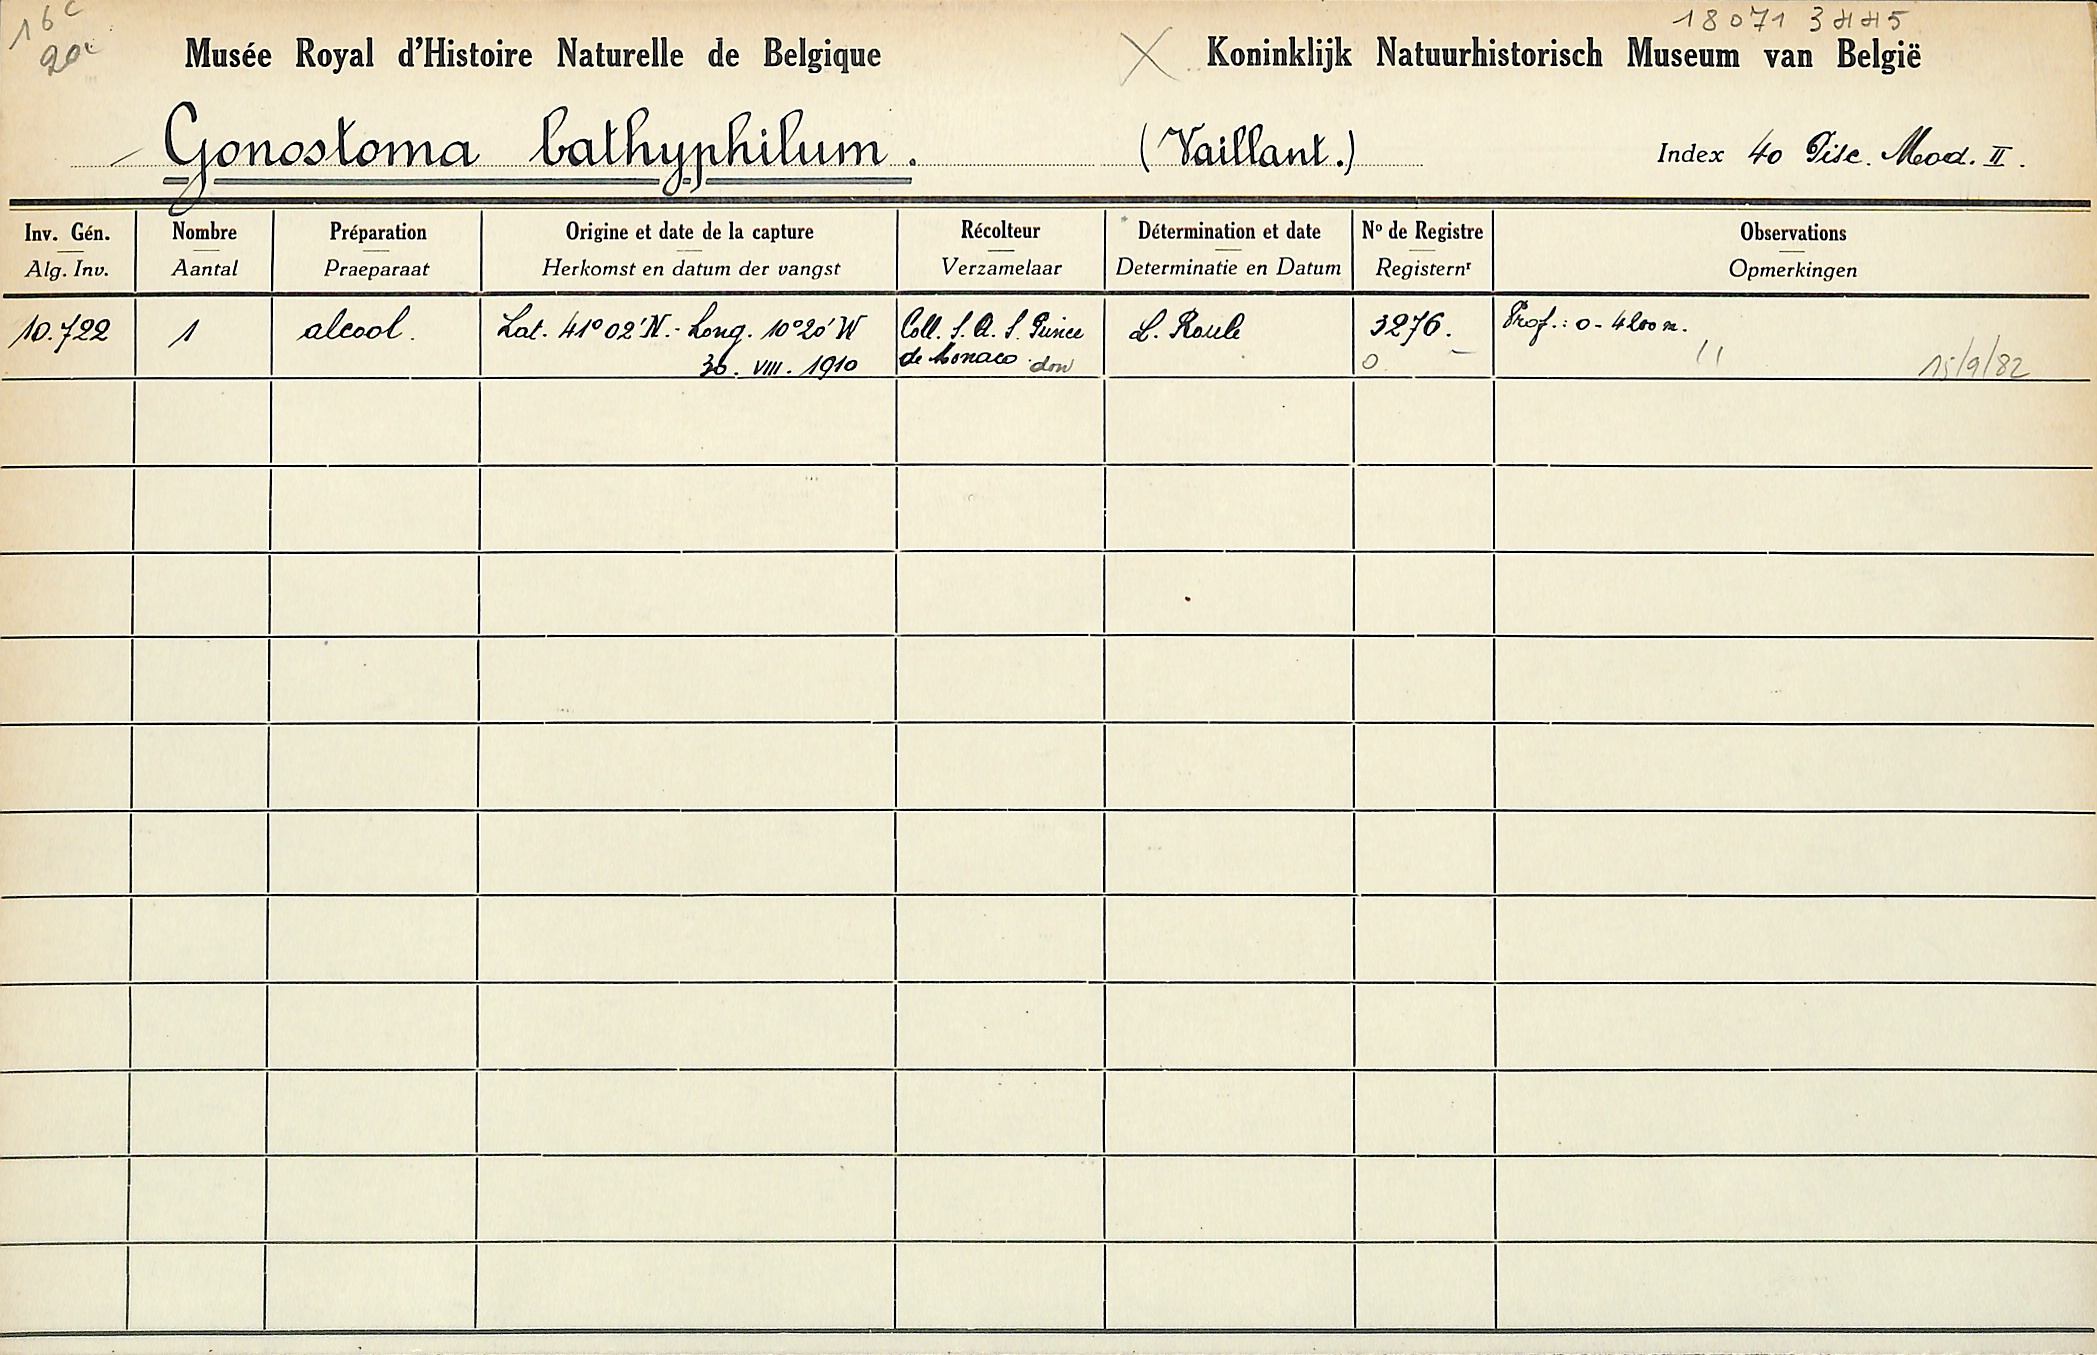 16c
20c
18071 3445
Musée Royal d'Histoire Naturelle de Belgique
X Koninklijk Natuurhistorisch Museum van België
Gonostoma bathyphilum. (Vaillant.) Index 40 Pisc. Mod. II.
Inv. Gén. Nombre Préparation Origine et date de la capture Récolteur Détermination et date Nº de Registre Observations
Alg. Inv. Aantal Praeparaat Herkomst en datum der vangst Verzamelaar Determinatie en Datum Registernʳ Opmerkingen
10.722 1 alcool. Lat. 41°02'N.- Long. 10°20'W Coll. S. A. S. Prince L. Roule 3276. Prof.: 0-4200m.
30. VIII. 1910 de Monaco don 0 15/9/82